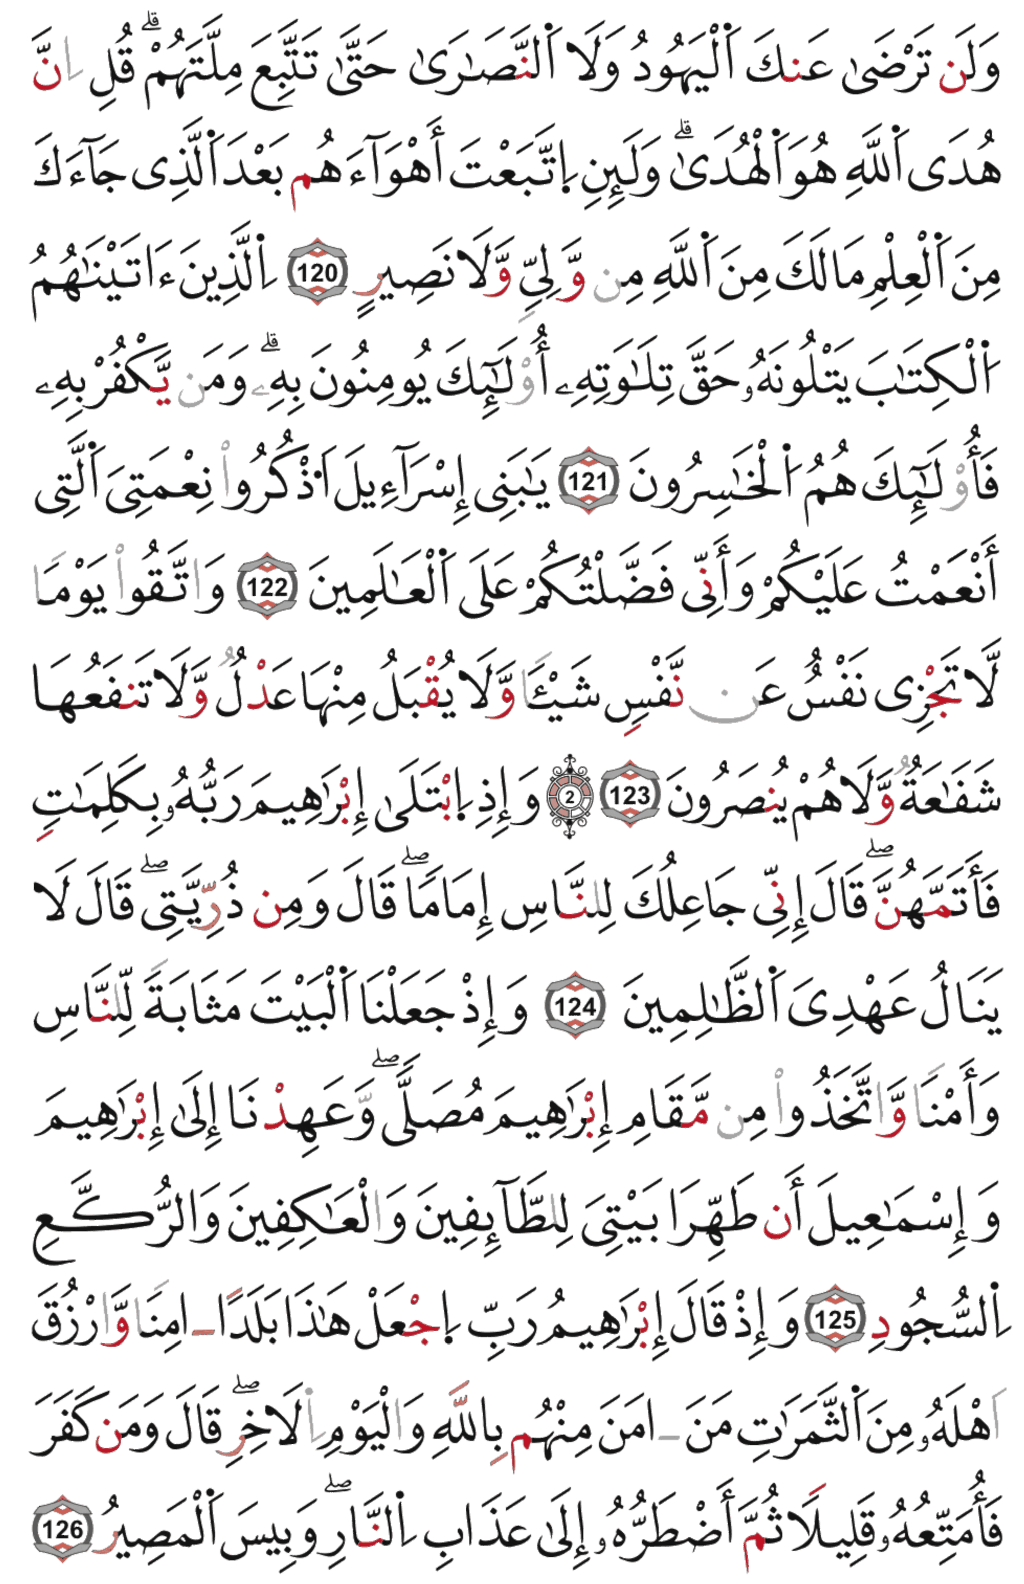 وَلَن تَرْضَىٰ عَنكَ اَ۬لْيَهُودُ وَلَا اَ۬لنَّصَٰرَىٰ حَتَّىٰ تَتَّبِعَ مِلَّتَهُمْۖ قُلِ اِنَّ
هُدَى اَ۬للَّهِ هُوَ اَ۬لْهُدَىٰۖ وَلَئِنِ اِ۪تَّبَعْتَ أَهْوَآءَهُم بَعْدَ اَ۬لَّذِى جَآءَكَ
مِنَ اَ۬لْعِلْمِ مَا لَكَ مِنَ اَ۬للَّهِ مِن وَّلِىٍّ وَّلَا نَصِيرٍ 120 اِ۬لَّذِينَ ءَاتَيْنَٰهُمُ
اُ۬لْكِتَٰبَ يَتْلُونَهُۥ حَقَّ تِلَٰوَتِهِۦ أُوْلَٰٓئِكَ يُومِنُونَ بِهِۦۖ وَمَن يَّكْفُرْ بِهِۦ
فَأُوْلَٰٓئِكَ هُمُ اُ۬لْخَٰسِرُونَ 121 يَٰبَنِى إِسْرَآءِيلَ اَ۟ذْكُرُواْ نِعْمَتِىَ اَ۬لَّتِى
أَنْعَمْتُ عَلَيْكُمْ وَأَنِّى فَضَّلْتُكُمْ عَلَى اَ۬لْعَٰلَمِينَ 122 وَاتَّقُواْ يَوْمًا
لَّا تَجْزِى نَفْسٌ عَن نَّفْسٍ شَيْـًٔا وَّلَا يُقْبَلُ مِنْهَا عَدْلٌ وَّلَا تَنفَعُهَا
شَفَٰعَةٌ وَّلَا هُمْ يُنصَرُونَ 123 2 وَإِذِ اِ۪بْتَلَىٰ إِبْرَٰهِيمَ رَبُّهُۥ بِكَلِمَٰتٍ
فَأَتَمَّهُنَّۖ قَالَ إِنِّى جَاعِلُكَ لِلنَّاسِ إِمَامًاۖ قَالَ وَمِن ذُرِّيَّتِىۖ قَالَ لَا
يَنَالُ عَهْدِىَ اَ۬لظَّٰلِمِينَ 124 وَإِذْ جَعَلْنَا اَ۬لْبَيْتَ مَثَابَةً لِّلنَّاسِ
وَأَمْنًا وَّاتَّخَذُواْ مِن مَّقَامِ إِبْرَٰهِيمَ مُصَلًّىۖ وَّعَهِدْنَا إِلَىٰ إِبْرَٰهِيمَ
وَإِسْمَٰعِيلَ أَن طَهِّرَا بَيْتِىَ لِلطَّآئِفِينَ وَالْعَٰكِفِينَ وَالرُّكَّعِ
اِ۬لسُّجُودِ 125 وَإِذْ قَالَ إِبْرَٰهِيمُ رَبِّ اِ۪جْعَلْ هَٰذَا بَلَدًا ـ امِنًا وَّارْزُقَ
اَهْلَهُۥ مِنَ اَ۬لثَّمَرَٰتِ مَنَ ـ امَنَ مِنْهُم بِاللَّهِ وَالْيَوْمِ اِ۬لَاخِرِۖ قَالَ وَمَن كَفَرَ
فَأُمَتِّعُهُۥ قَلِيلًا ثُمَّ أَضْطَرُّهُۥ إِلَىٰ عَذَابِ اِ۬لنَّارِۖ وَبِيسَ اَ۬لْمَصِيرُ 126